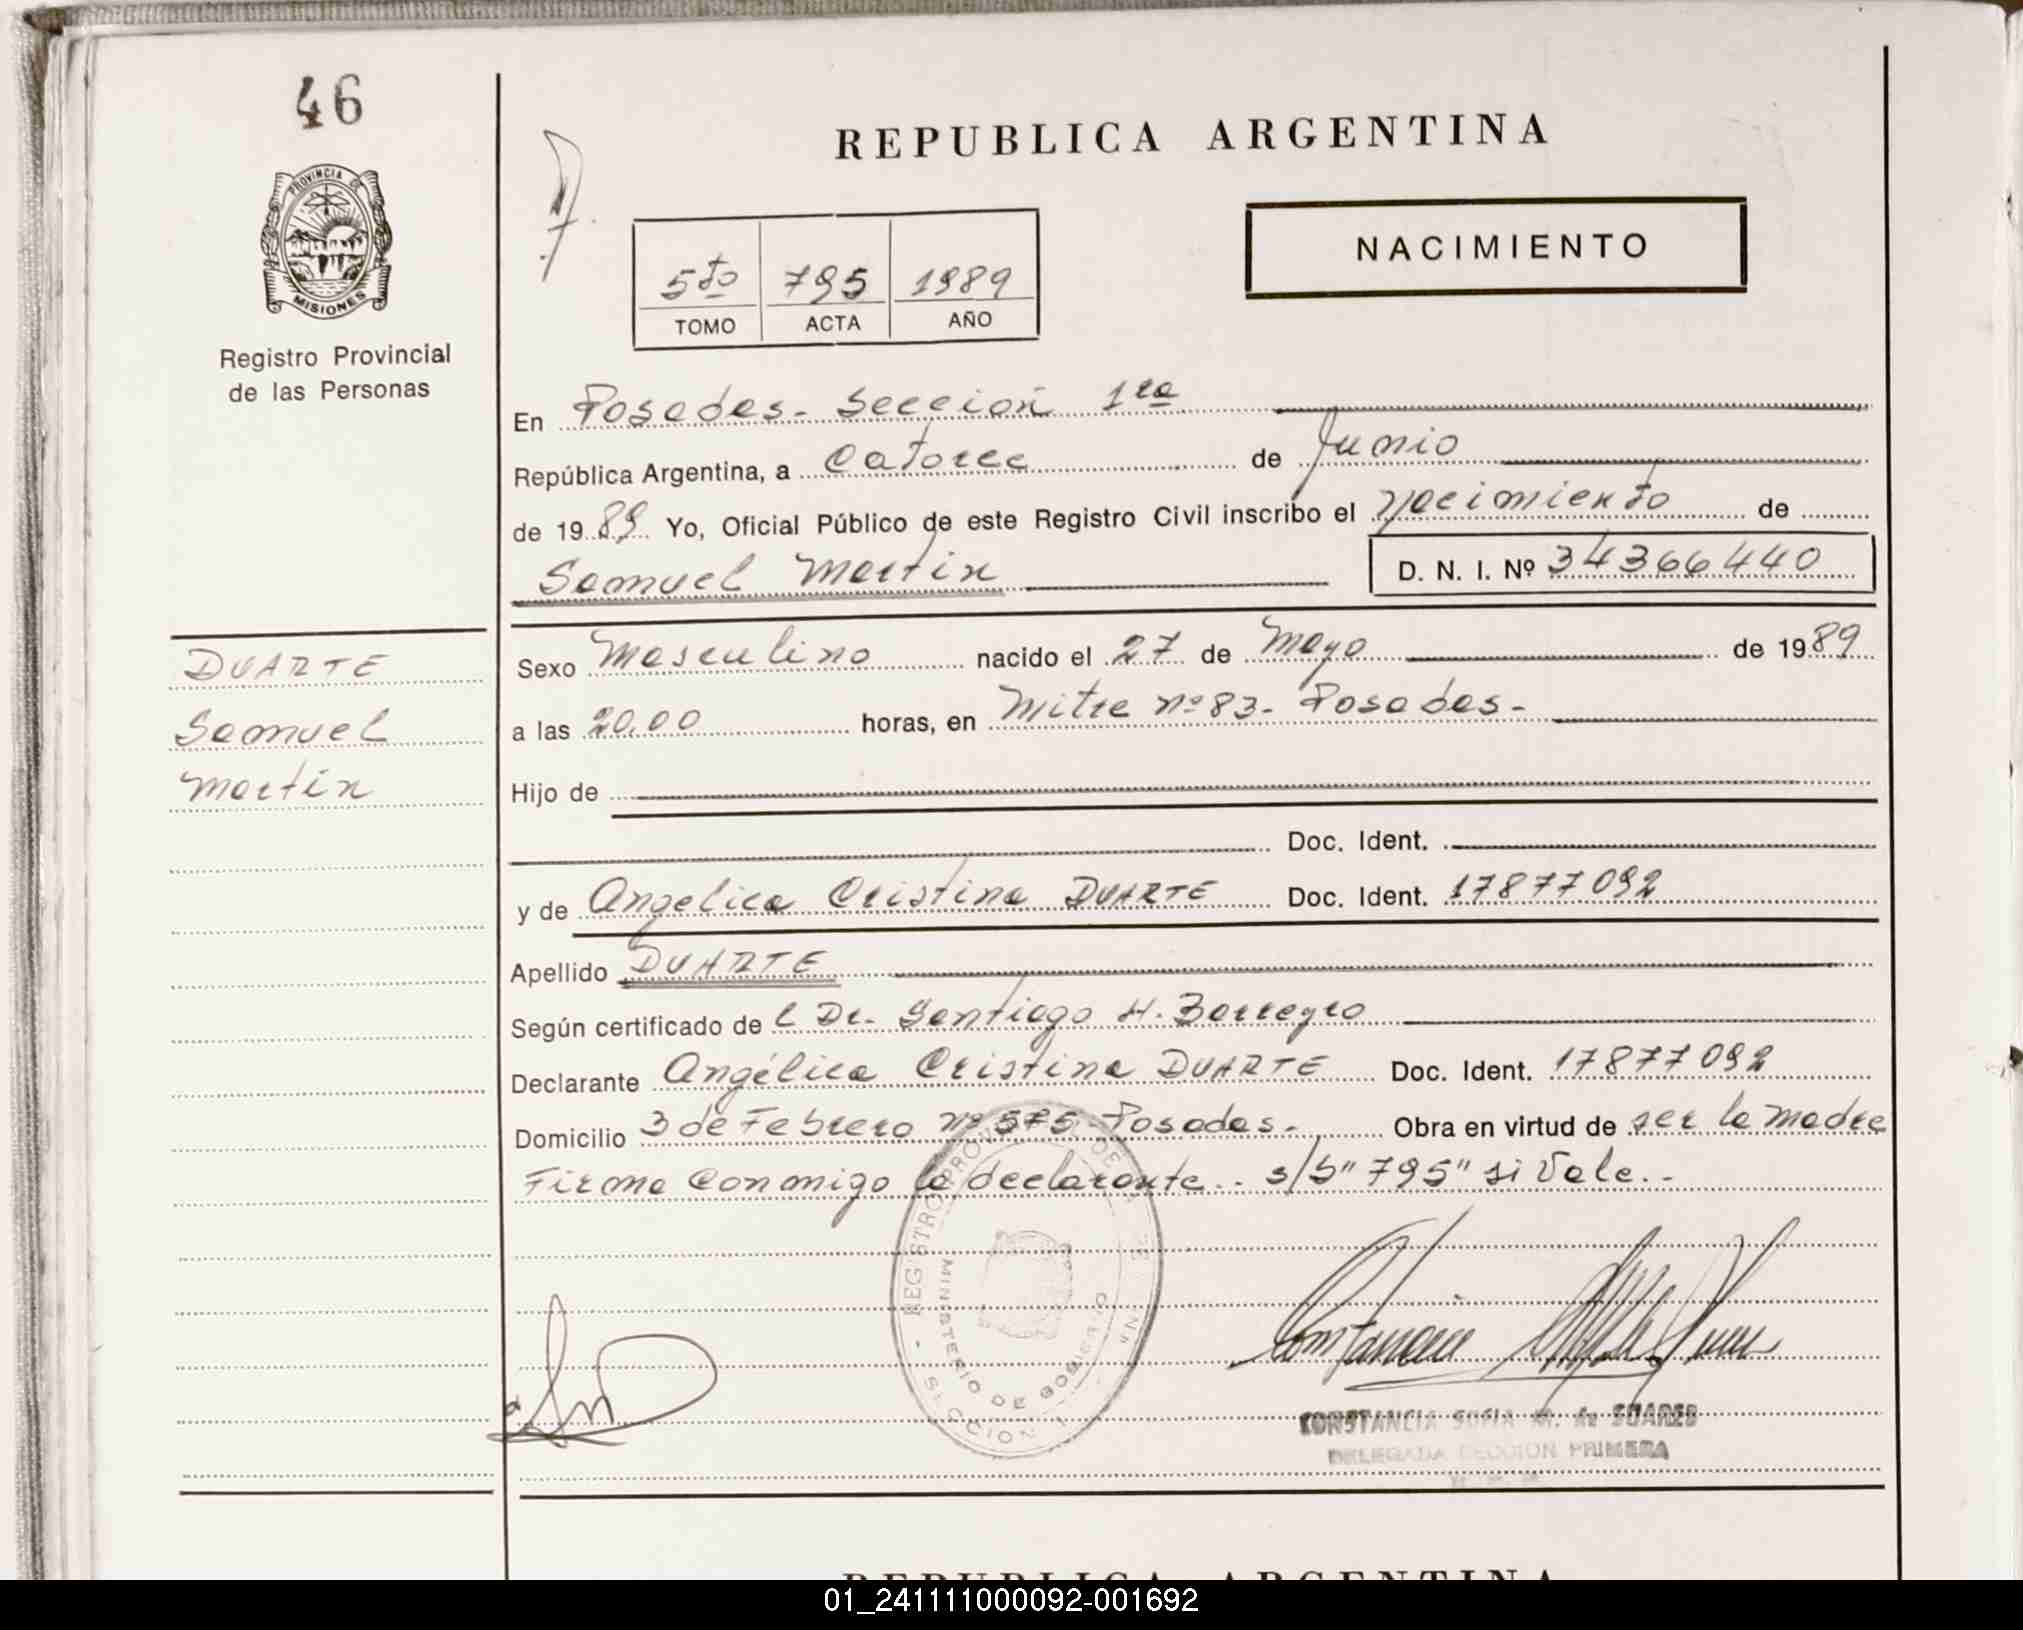 46
PROVINCIA DE
MISIONES
Registro Provincial
de las Personas
DUARTE
Samuel
Martín
REPUBLICA ARGENTINA
NACIMIENTO
5to 795 1989
TOMO ACTA AÑO
En Posadas - Sección 1ra
República Argentina, a Catorce de Junio
de 1989 Yo, Oficial Público de este Registro Civil inscribo el Nacimiento de
Samuel Martín D. N. I. Nº 34366440
Sexo Masculino nacido el 27 de Mayo de 1989
a las 20,00 horas, en Mitre nº 83 - Posadas -
Hijo de
Doc. Ident.
y de Angélica Cristina DUARTE Doc. Ident. 17877092
Apellido DUARTE
Según certificado de l Dr. Santiago H. Barreyro
Declarante Angélica Cristina DUARTE Doc. Ident. 17877092
Domicilio 3 de Febrero nº 575 - Posadas - Obra en virtud de ser la madre
Firma conmigo la declarante.. s/b "795" si Vale.-
REGISTRO PROV DE
MINISTERIO DE GOBIERNO
SECCION 1
CONSTANCIA SOFIA M. de SUARES
DELEGADA SECCION PRIMERA
REPUBLICA ARGENTINA
01_241111000092-001692